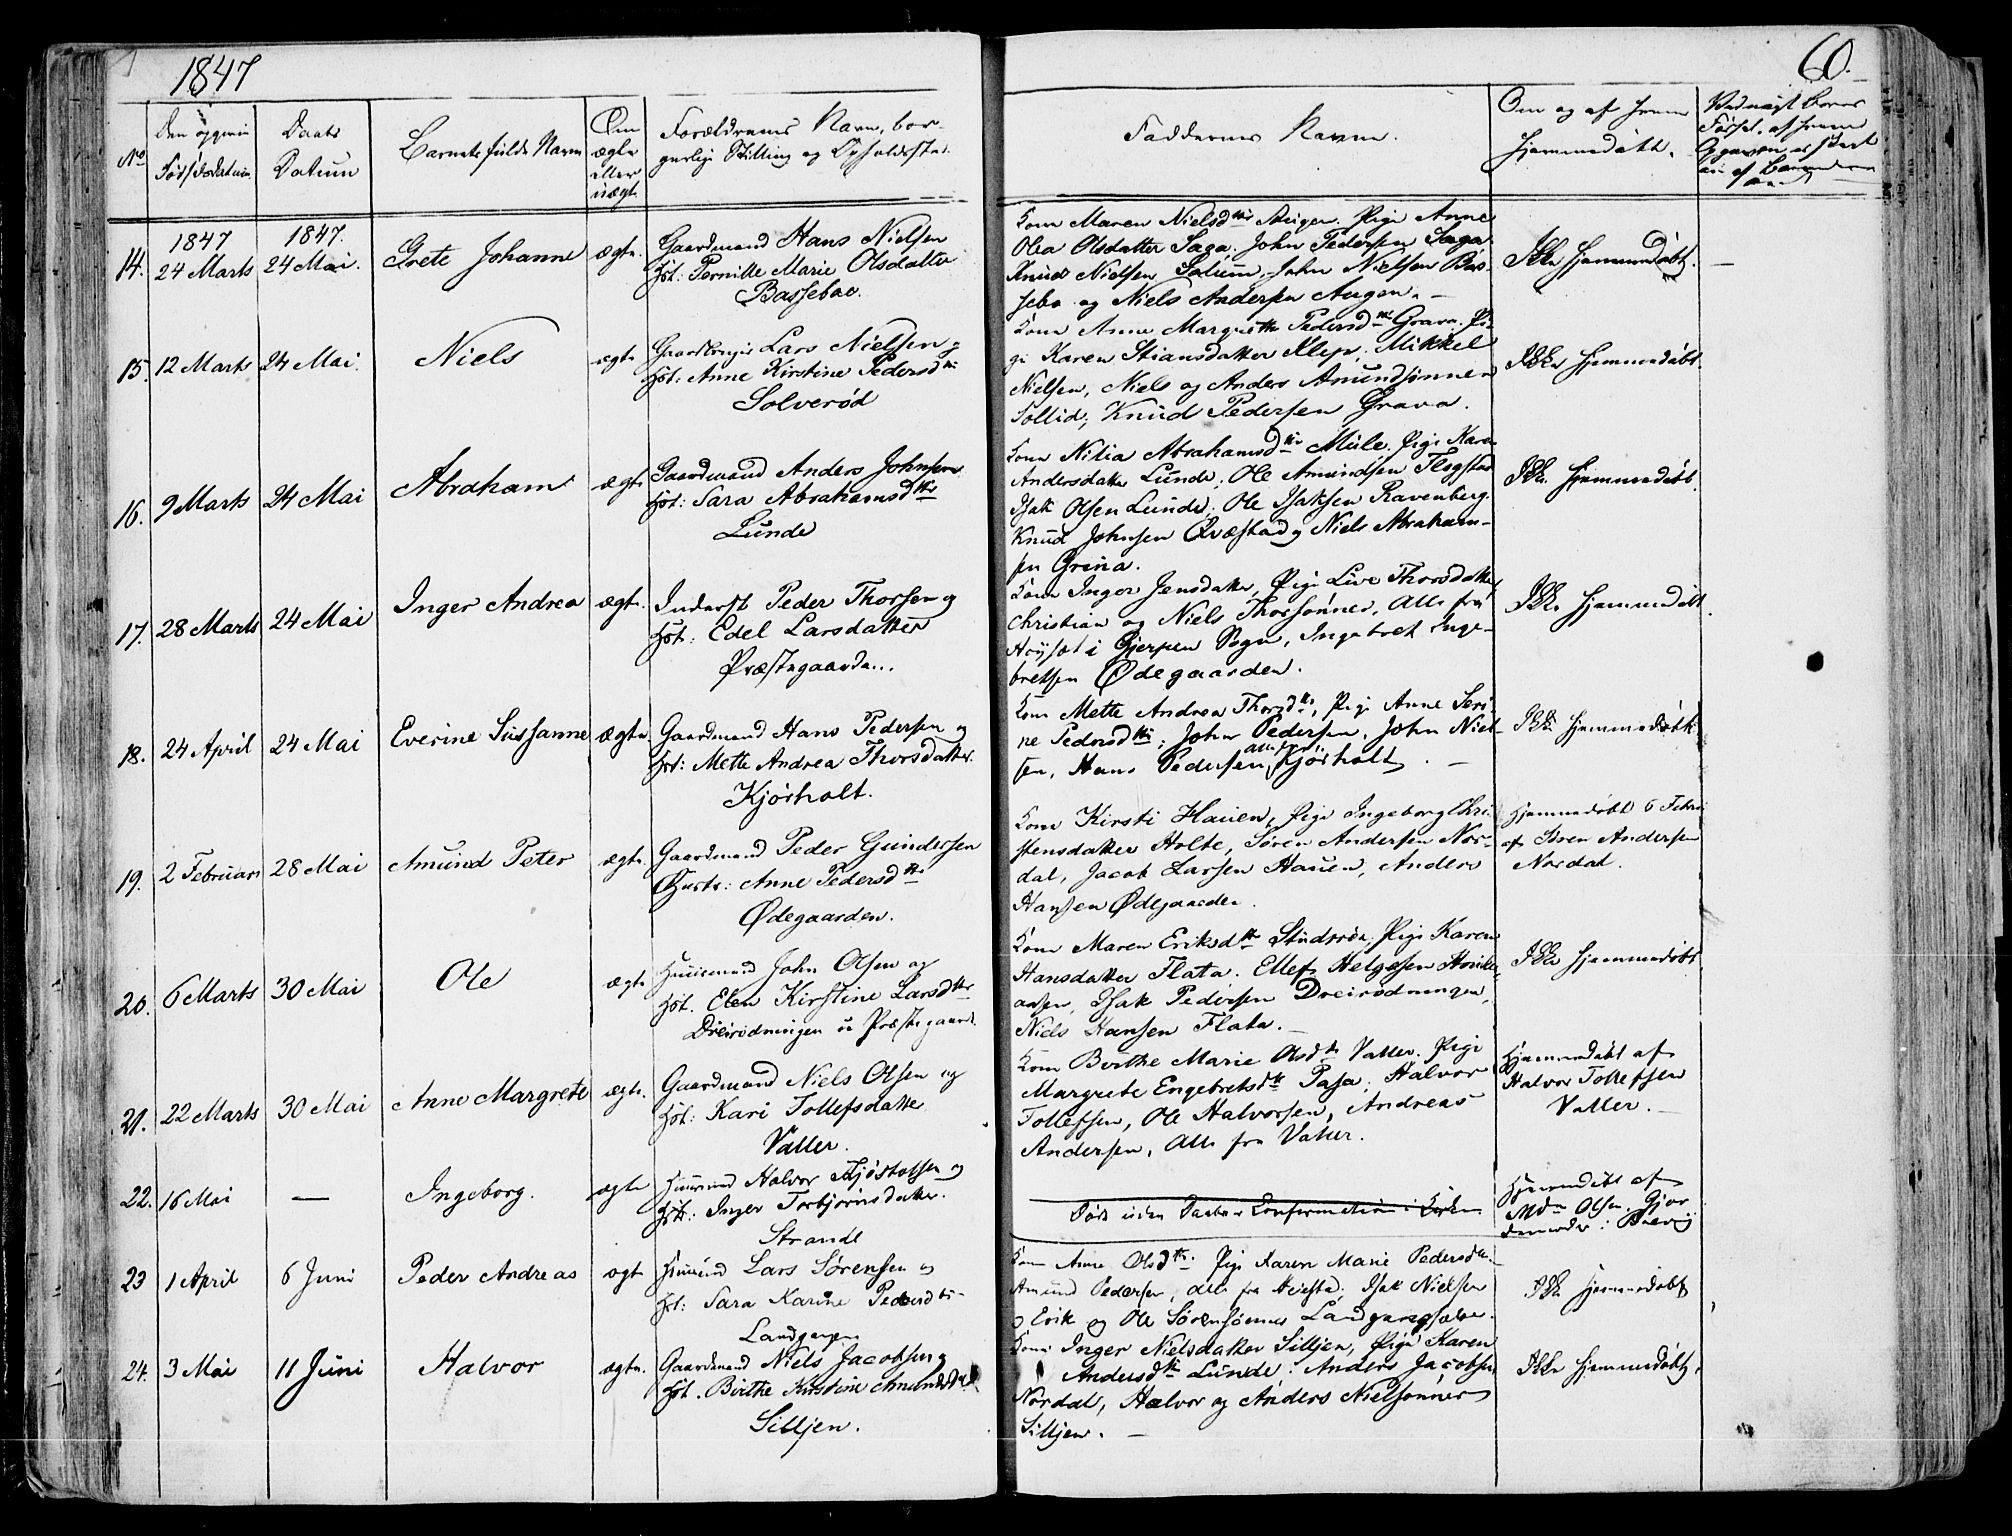 1847
60.
No
Den opgivne
Fødselsdatum
Daabs
Datum
Barnets fulde Navn
Om
ægte
eller
uægte
Forældrenes Navn, bor-
gerlige Stilling og Opholdssted.
Faddernes Navne.
Om og af hvem
hjemmedøbt.
14.
1847
24 Marts
1847.
24 Mai.
Grete Johanne
ægte.
Gaardmand Hans Nielsen
Hst: Pernille Marie Olsdatter
Basseboe.
Kone Maren Nielsdtr Pige Anne
Olea Olsdatter Saga. John Pedersen Saga
Knud Nielsen Solum, John Nielsen Bas-
sebo og Niels Andersen Augen. –
Ikke hjemmedøbt.
—
15.
12 Marts
24 Mai.
Niels
ægte
Gaardbruger Lars Nielsen og
Hst: Anne Kirstine Pedersdtr
Solverød
Kone Anne Margrethe Pedersdtr Grava. Pi-
ge Karen Stiansdatter Klep. Mikkel
Nielsen, Niels og Anders Amundsønner
Sollid; Knud Pedersen Grava.
Ikke hjemmedøbt.
16.
9 Marts
24 Mai
Abraham
ægte
Gaardmand Anders Johnsen
Hst: Sara Abrahamsdtr
Lunde
Kone Nilia Abrahamsdtr Mule. Pige Karen
Andersdatter Lunde; Ole Amundsen Flogstad
Isak Olsen Lunde; Ole Isaksen Ravenberg.
Knud Johnsen Qvæstad og Niels Abraham-
sen Grina.
Ikke hjemmedøbt.
17.
28 Marts
24 Mai
Inger Andrea
ægte.
Inderst Peder Thorsen og
Hst: Edel Larsdatter
Præstegaarden.
Kone Inger Jensdatter, Pige Live Thorsdatter
Christian og Niels Thorsønner, Alle fra
i Gjerpen Sogn, Ingebret Inge-
bretsen Ødegaarden.
Ikke hjemmedøbt.
18.
24 April
24 Mai
Everine Sussanne
ægte
Gaardmand Hans Pedersen og
Hst: Mette Andrea Thorsdatter.
Kjørholt.
Kone Mette Andrea Thorsdtr, Pige Anne Seri-
ne Pedersdtr; John Pedersen, John Niel-
sen, Hans Pedersen, alle fra Kjørholt. –
Ikke hjemmedøbt
19.
2 Februari
28 Mai
Amund Peter
ægte.
Gaardmand Peder Gundersen
Hustr: Anne Pedersdtr
Ødegaarden.
Kone Kirsti Hauen, Pige Ingeborg Chri-
stensdatter Holte, Søren Andersen Nor-
dal, Jacob Larsen Hauen, Anders
Hansen Ødegaarden.
Hjemmedøbt 6 Febru
af Søren Andersen
Nordal.
20.
6 Marts
30 Mai
Ole
ægte
Huusmand John Olsen og
Hst. Elen Kirstine Larsdtr
Dreirødningen u. Præstegaard.
Kone Maren Eriksdtr Studsrøa, Pige Karen
Hansdatter Flata. Ellef Helgesen
aasen, Isak Pedersen Dreirødningen,
Niels Hansen Flata. –
Ikke hjemmedøbt
21.
22 Marts
30 Mai
Anne Margrete
ægte.
Gaardmand Niels Olsen og
Hst: Kari Tollefsdatter
Valler.
Kone Birthe Marie Olsdtr Valler. Pige
Margrete Engebretsdtr Pasa; Halvor
Tollefsen, Ole Halvorsen, Andreas
Andersen, Alle fra Valler.
Hjemmedøbt af
Halvor Tollefsen
Valler. –
22.
16 Mai
—
Ingeborg.
ægte
Huusmand Halvor Kjøstolsen og
Hst: Inger Torbjørnsdatter.
Strande
Død uden Daabens Confirmation i Kirken
Hjemmedøbt af
Mdm Olsen, Gjor
demoder i Brevig
23
1 April
6 Juni
Peder Andreas
ægt
Huusmand Lars Sørensen og
Hst: Sara Karine Pedersdtr
Landgangen
Kone Anne Olsdtr. Pige Karen Marie Pedersdtr.
Amund Pedersen, alle fra Isak Nielsen
og Erik og Ole Sørensønner Landgangs
Ikke hjemmedøbt
24.
3 Mai
11 Juni
Halvor
ægte.
Gaardmand Niels Jacobsen og
Hst. Birthe Kirstine Amundsdtr
Silljen.
Kone Inger Nielsdatter Silljen, Pige Karen
Andersdtr Lunde. Anders Jacobsen
Nordal, Halvor og Anders Nielsønner
Silljen. –
Ikke hjemmedøbt,